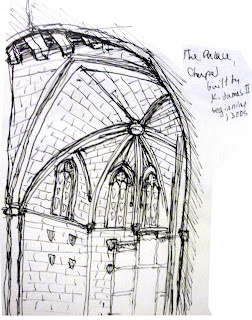 The Palace,
Chapel
built by
K. James II
beginning
1300s